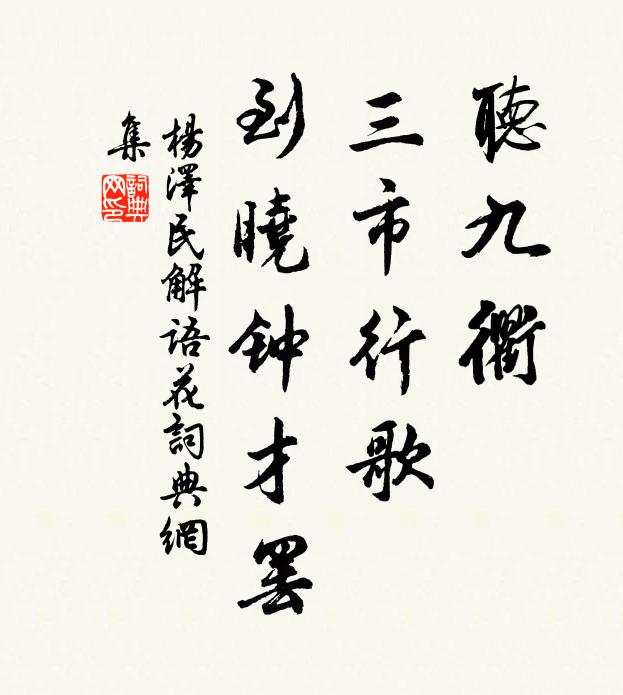 聽九衢
三市行歌
到曉钟才罢
楊澤民解語花詞典網
集
詞典
网印